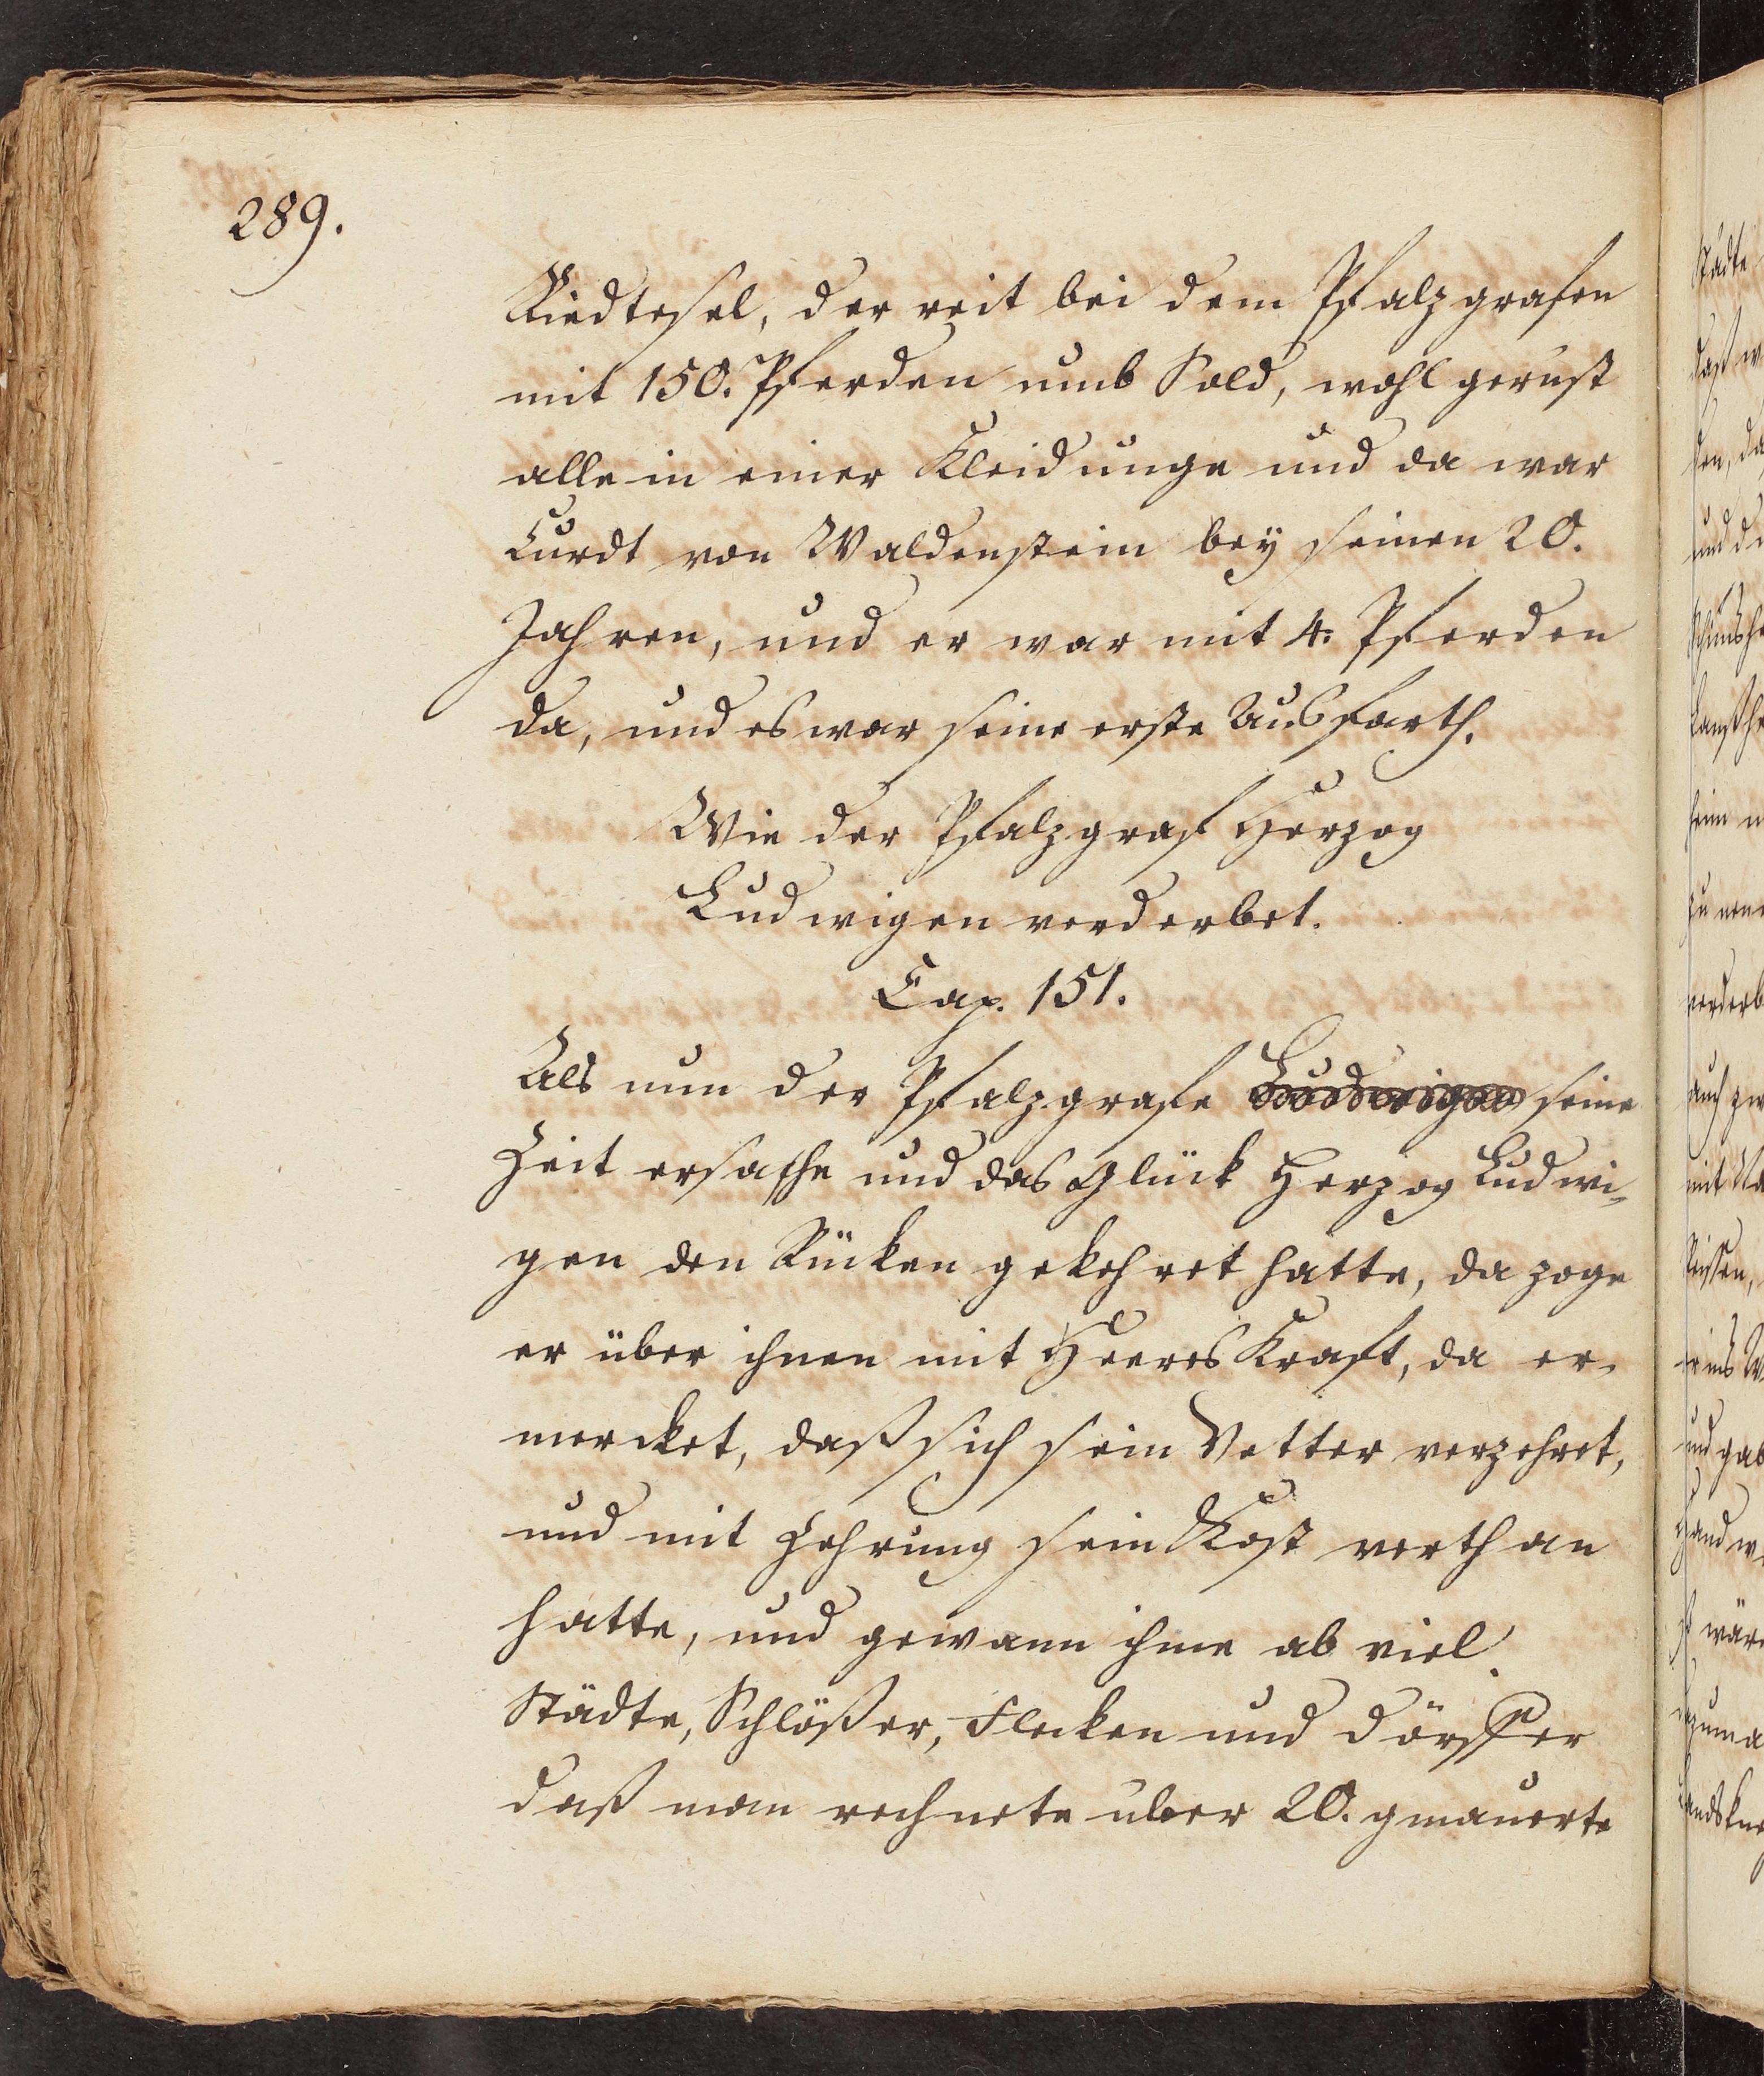 289.
Riedtesel, der reit bei dem Pfalzgrafen
mit 150. Pferden umb Sold, wohl gerust
alle in einer Kleidunge und da war
Curdt von Waldenstein bey seinen 20.
Jahren, und er war mit 4. Pferden
da, und es war seine erste Ausfarth.
Wie der Pfalzgraf Herzog
Ludwigen verderbet.
Cap. 151.
Als nun der Pfalzgrafe Ludwigen seine
Zeit ersahe und das Glück Herzog Ludwi-
gen den Rücken gekehret hatte, da zoge
er über ihnen mit Heeres Kraft, da er
mercket, daß sich sein Vetter verzehret,
und mit Zehrung sein Kost verthan
hatte, und gewann ihme ab viel
Städte, Schlößer, Flecken und Dörffer
daß man rechnete über 20. gmauerte
Städte
zu
verderb
auch
mit
und gab
wäre